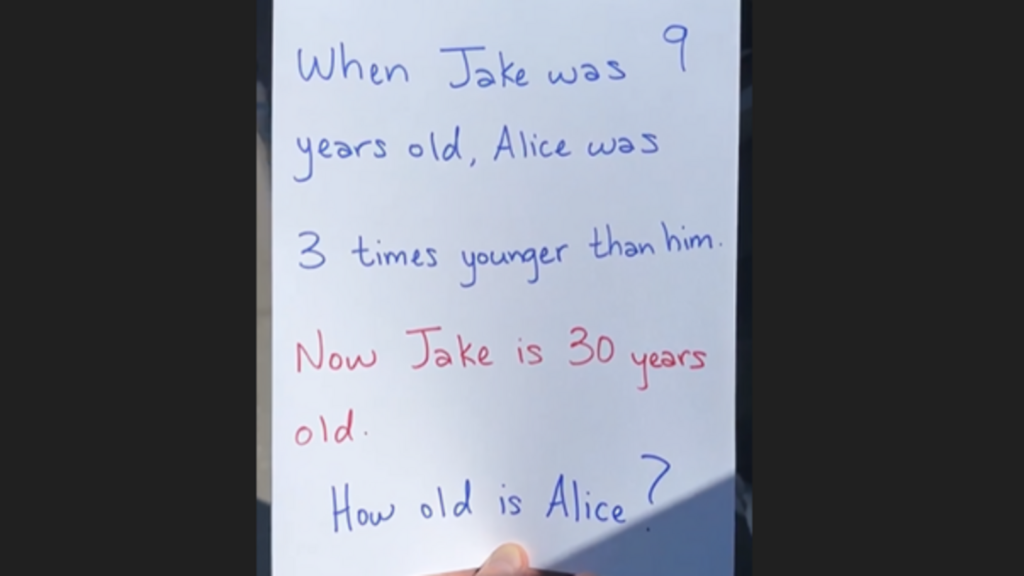 When Jake was 9
years old, Alice was
3 times younger than him.
Now Jake is 30 years
old.
How old is Alice?